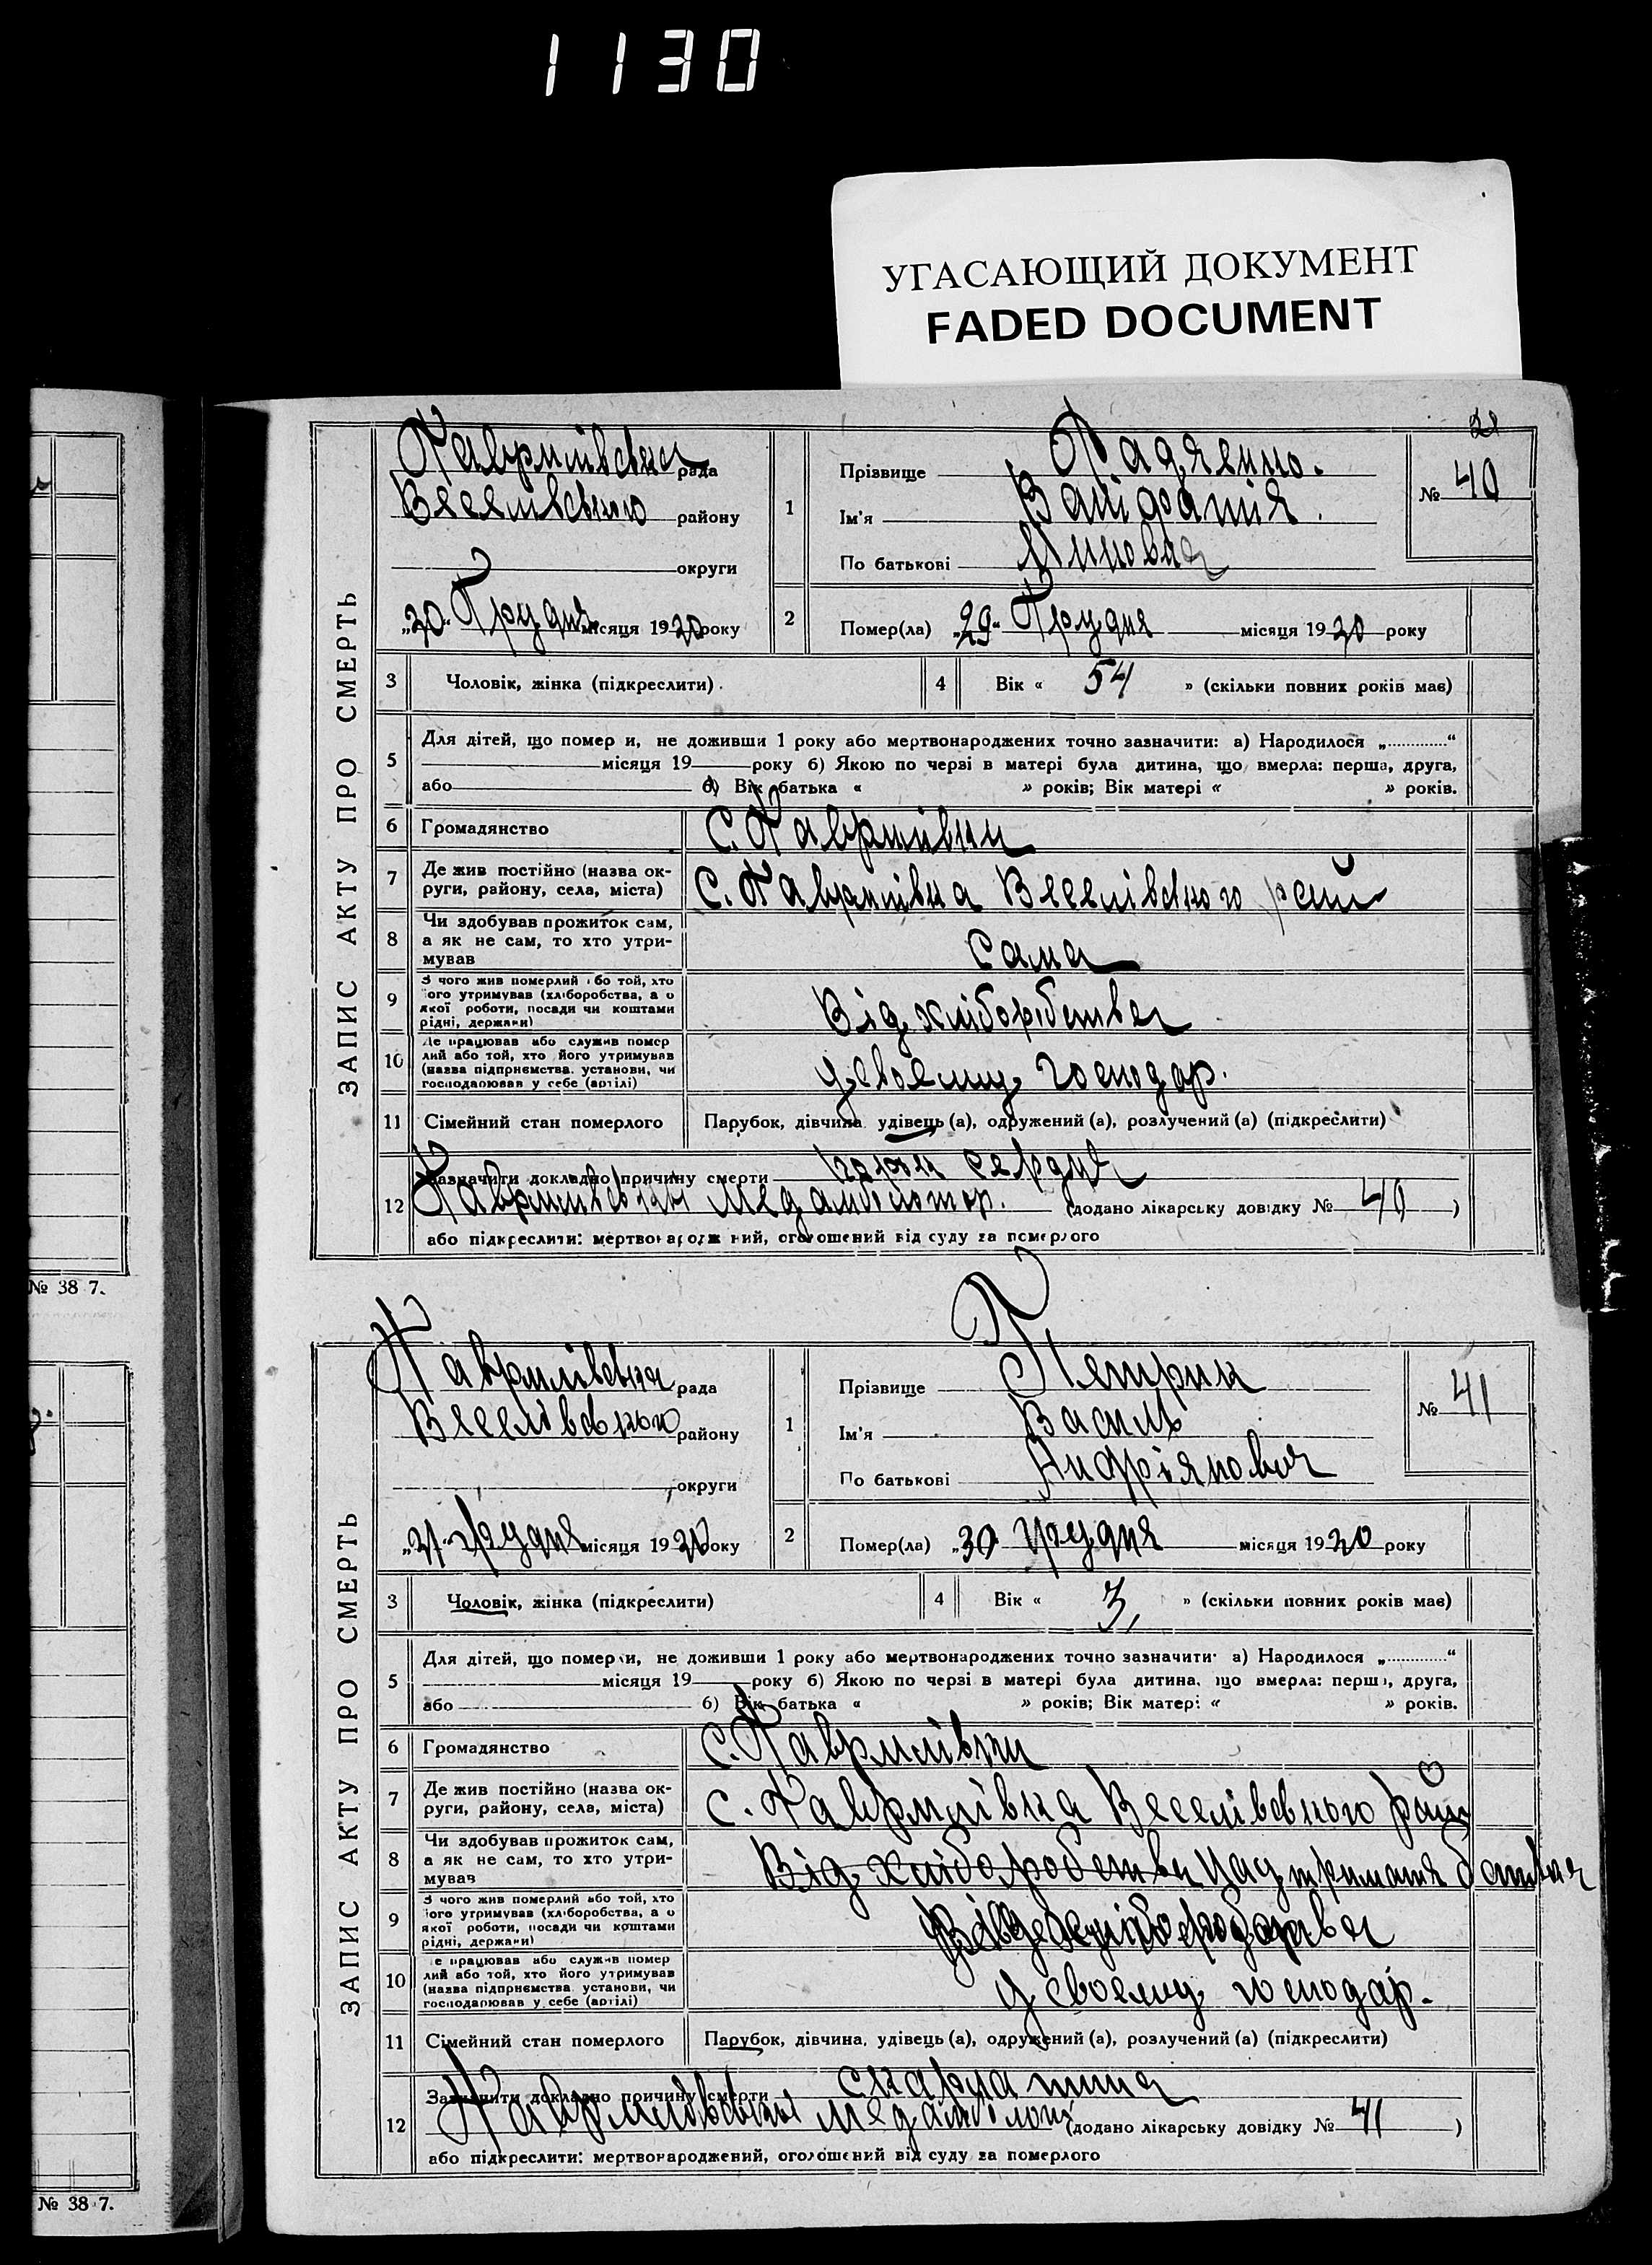 1130
УГАСАЮЩИЙ ДОКУМЕНТ
FADED DOCUMENT
28
ЗАПИС АКТУ ПРО СМЕРТЬ
Гаврилівська рада
Веселівського району
округи
„30“ Грудня місяця 1920 року
1
Прізвище
Ім'я
По батькові
№ 40
2
Помер(ла) „29“ Грудня місяця 1920 року
3 Чоловік, жінка (підкреслити).
4 Вік « 54 » (скільки повних років має)
5 Для дітей, що помер и, не доживши 1 року або мертвонароджених точно зазначити: а) Народилося „............“
місяця 19 року б) Якою по черзі в матері була дитина, що вмерла: перша, друга,
або б) Вік батька « » років; Вік матері « » років.
6 Громадянство с. Гаврилівки
7 Де жив постійно (назва ок-
руги, району, села, міста) С. Гаврилівка Веселівського рай
8 Чи здобував прожиток сам,
а як не сам, то хто утри-
мував Сама
9 З чого жив померлий або той, хто
його утримував (хліборобства, а о
якої роботи, посади чи коштами
рідні, держави) Від хліборобства
10 Де працював або служив помер
лий або той, хто його утримував
(назва підприємства, установи, чи
господарював у себе (артілі) у своєму господар.
11 Сімейний стан померлого Парубок, дівчина, удівець (а), одружений (а), розлучений (а) (підкреслити)
12 Зазначити докладно причину смерти сердця
Гаврилівська (додано лікарську довідку № 40 )
або підкреслити: мертвонароджений, оголошений від суду за померлого
№ 38 7.
ЗАПИС АКТУ ПРО СМЕРТЬ
Гаврилівська рада
Веселівського району
округи
„31“ грудня місяця 1920 року
1
Прізвище Петрик
Ім'я Василь
По батькові Андріянович
№ 41
2
Помер(ла) „30 грудня місяця 1920 року
3 Чоловік, жінка (підкреслити)
4 Вік « 3 » (скільки повних років має)
5 Для дітей, що померли, не доживши 1 року або мертвонароджених точно зазначити: а) Народилося „............“
місяця 19 року б) Якою по черзі в матері була дитина, що вмерла: перша, друга,
або б) Вік батька « » років; Вік матері « » років.
6 Громадянство с. Гаврилівки
7 Де жив постійно (назва ок-
руги, району, села, міста) с. Гаврилівка Веселівського рай
8 Чи здобував прожиток сам,
а як не сам, то хто утри-
мував Від хліборобства
9 З чого жив померлий або той, хто
його утримував (хліборобства, а о
якої роботи, посади чи коштами
рідні, держави)
10 Де працював або служив помер
лий або той, хто його утримував
(назва підприємства, установи, чи
господарював у себе (артілі) у своєму господар.
11 Сімейний стан померлого Парубок, дівчина, удівець (а), одружений (а), розлучений (а) (підкреслити)
12 Зазначити докладно причину смерти скарлатина
Гаврилівська (додано лікарську довідку № 41 )
або підкреслити: мертвонароджений, оголошений від суду за померлого
№ 38 7.